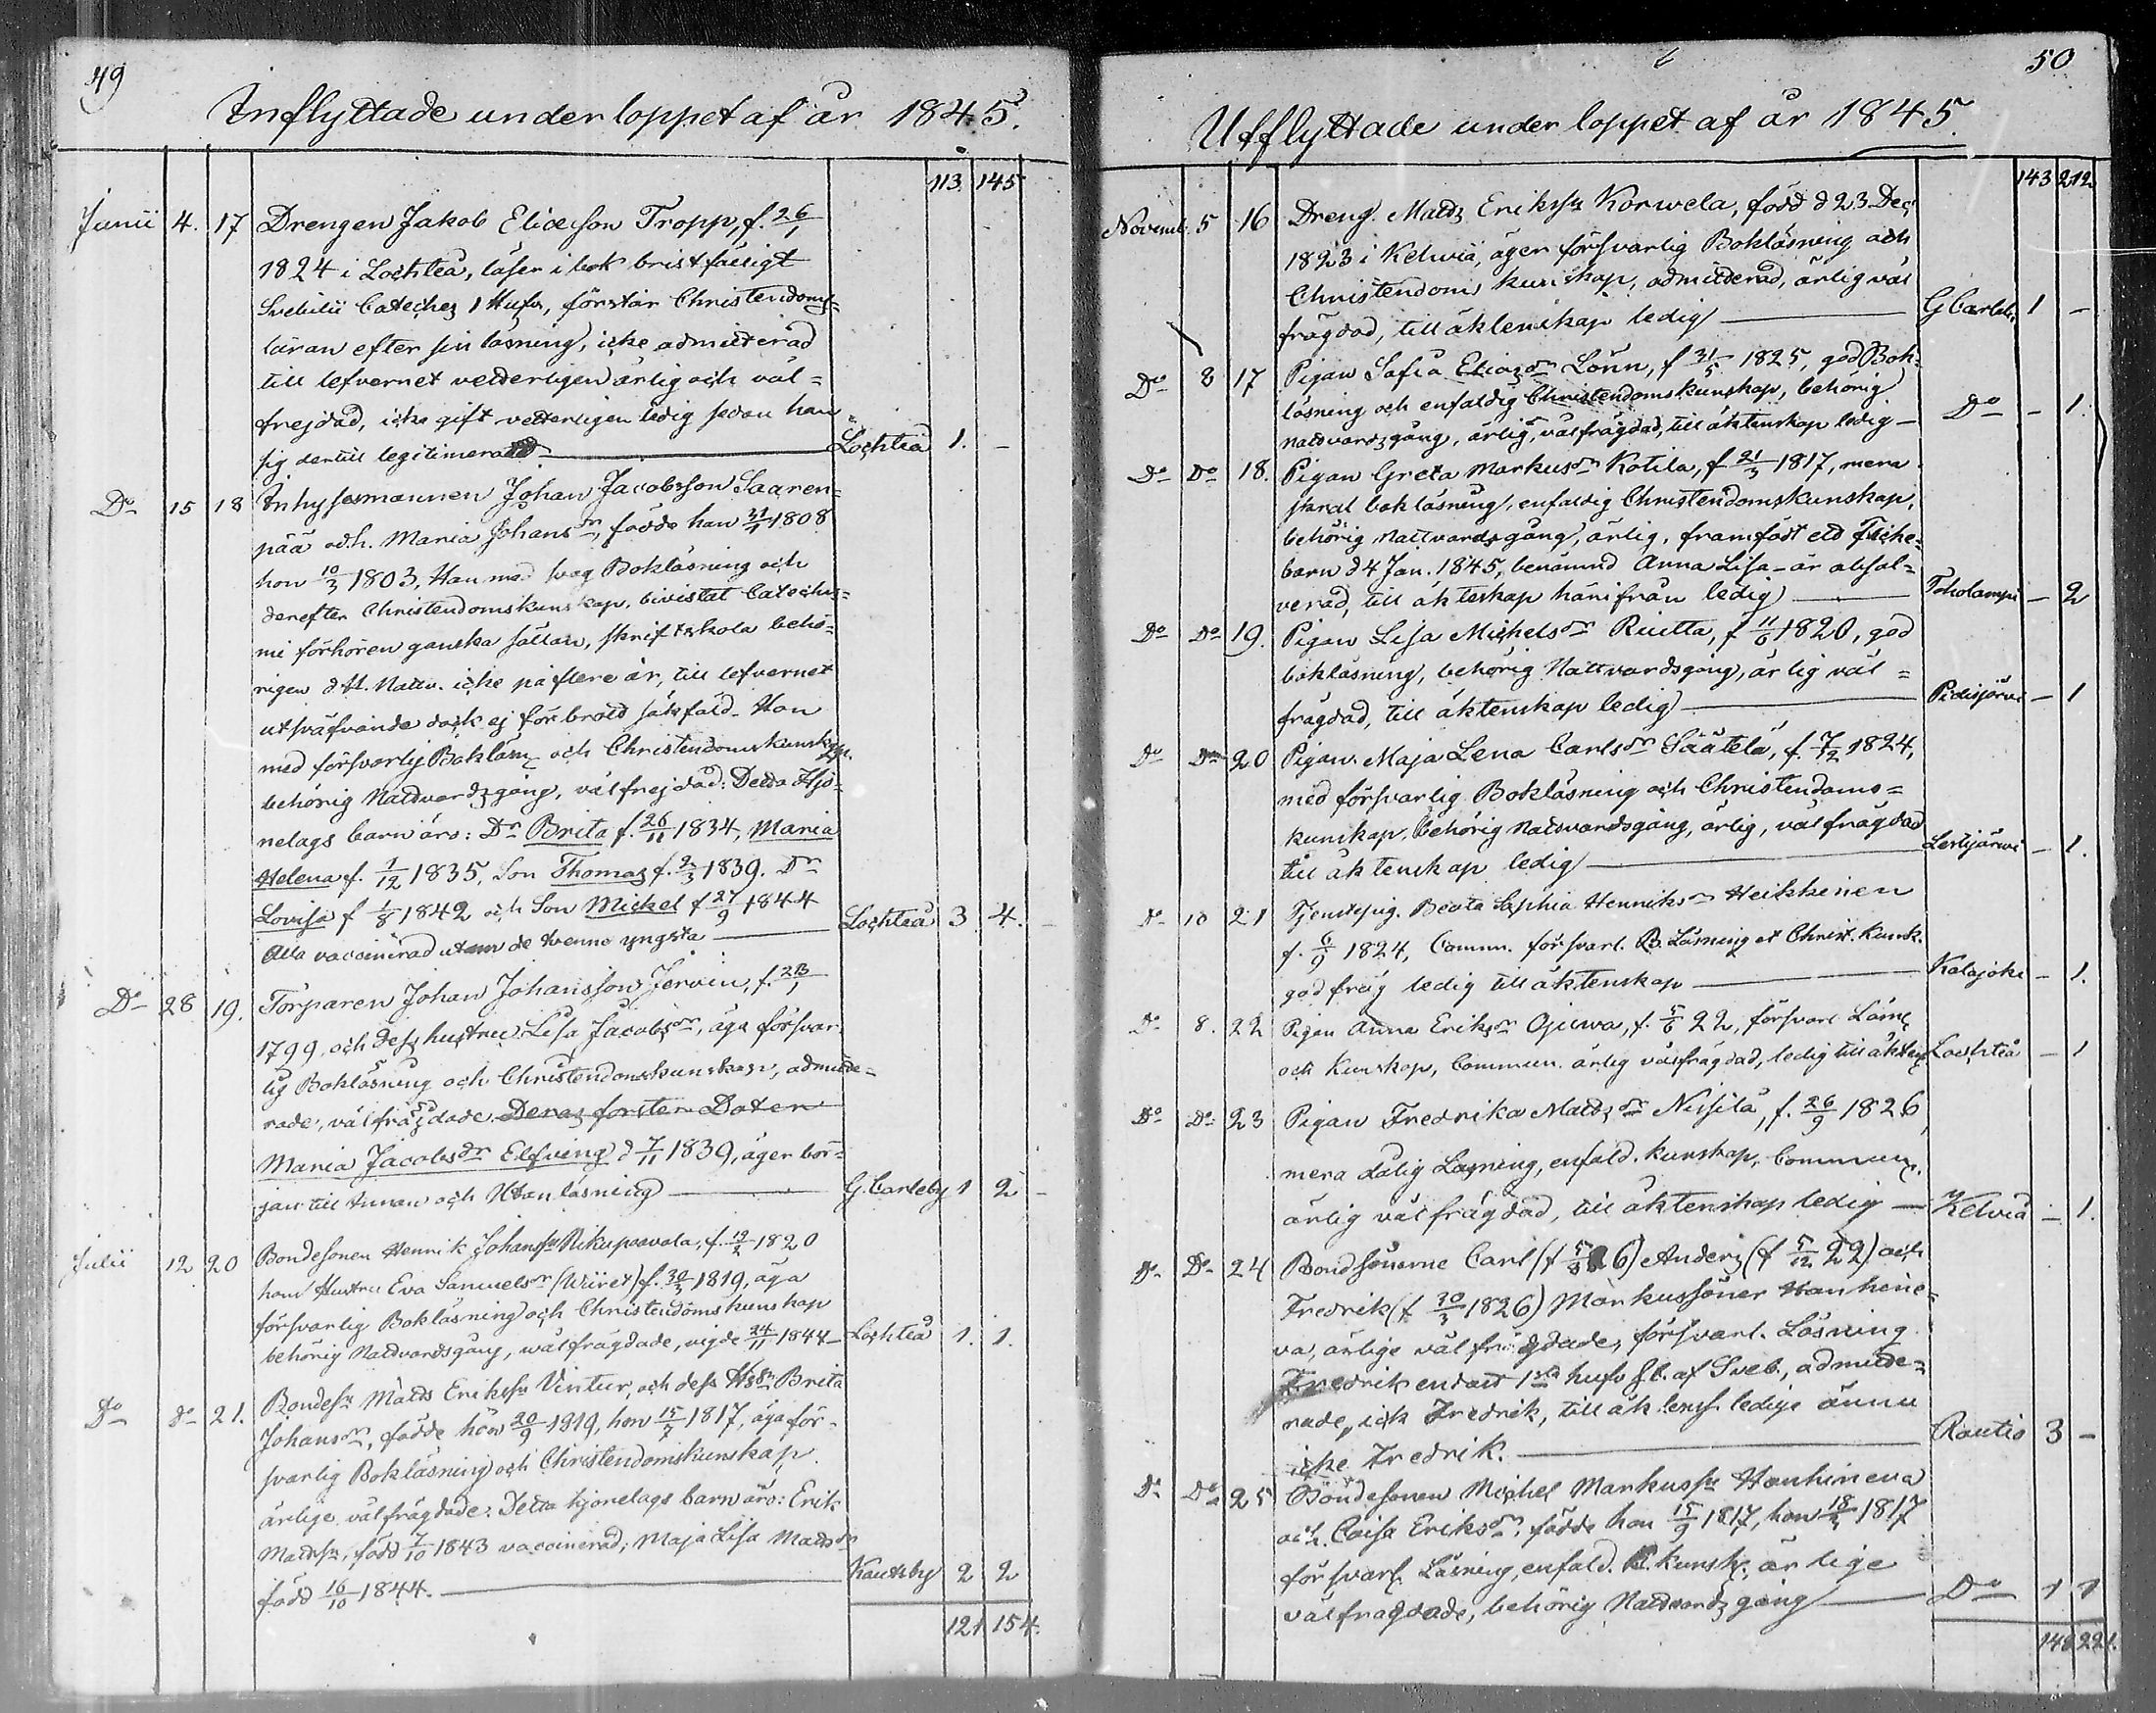 49
Inflyttade under loppet af år 1845.
113 145
Junii 4. 17 Drengen Jakob Eliæson Tropp, f. 26/1
1824 i Lochteå, läser i bok bristfälligt
Svebilii Cateches 1 Hufv, förstår Christendoms=
läran efter sin läsning, icke admitterad
till lefvernet vetterligen ärlig och väl=
frejdad, icke gift vetterligen ledig sedan han
sig dertill legitimerat Lochteå 1. -
Do 15 18 Inhysesmannen Johan Jacobsson Saaren=
pää och h. Maria Johansdr, födde han 31/1 1808
hon 10/3 1803, Han med svag Bokläsning och
derefter Christendomskunskap, bivistat Catechis=
mi förhören ganska sällan, skriftskola behö=
rigen d H. Nattv. icke på flere år, till lefvernet
utsväfvande dock ej för brott sakfäld. Hon
med försvarlig Bokläsn och Christendomskunskap.
behörig Nattvardsgång, välfrejdad: Detta Hjo=
nelags barn äro: Dr Brita f. 26/11 1834, Maria
Helena f. 1/12 1835, Son Thomas f. 2/3 1839. Dr
Lovisa f 1/8 1842 och Son Mickel f 27/9 1844
Alla vaccinerad utom de tvenne yngsta Lochteå 3 4.
Do 28 19. Torparen Johan Johansson Jervin, f. 23/1
1799 och dess hustru Lisa Jacobsdr, äga försvar=
lig Bokläsning och Christendomskunskap, admitte=
rade, välfrägdade. Deras foster Doter
Maria Jacobsdr Elfving d 7/11 1839, äger bör=
jan till Innan och Utan läsning G. Carleby 1 2
Julii 12 20 Bondesonen Henrik Johanss Rikupaavola, f. 19/2 1820
hans Hustru Eva Samuelsdr (Wiiret) f. 30/3 1819, äga
försvarlig Bokläsning och Christendomskunskap
behörig Nattvardsgång, wälfrägdade, vigde 24/11 1844 Lochteå 1. 1.
Do do 21. Bondesn Matts Erikssn Vintur, och dess Hstr Brita
Johansdr, födde han 20/9 1819, hon 15/7 1817, äga för=
svarlig Bokläsning och Christendomskunskap.
ärlige välfrägdade: Detta hjonelags barn äro: Erik
Mattssn, född 7/10 1843 vaccinerad; Maja Lisa Mattsdr
född 16/10 1844. Kautsby 2 2
121 154.
50
Utflyttade under loppet af år 1845.
143 212
Novemb. 5 16 Dreng. Matts Erikssn Korwela, född d 23 Dec
1823 i Kelviå, äger försvarlig Bokläsning och
Christendoms kunskap, admitterad, ärlig väl
frägdad, till äktenskap ledig G Carleb. 1 -
Do 8 17 Pigan Safia Eliasdr Lönn, f 31/5 1825, god Bok=
läsning och enfaldig Christendomskunskap, behörig
nattvardsgång, ärlig, välfrägdad, till äktenskap ledig Do - 1.
Do Do 18. Pigan Greta Markusdr Kotila, f 21/3 1817, mera
skral bokläsning, enfaldig Christendomskunskap,
behörig Nattvardsgång, ärlig, framfödt ett Ficke=
barn d 4 Jan. 1845, benämnd Anna Lisa - är absol=
verad, till äkteskap härifrån ledig Toholampi - 2
Do Do 19. Pigan Lisa Michelsdr Ruitta, f 11/6 1820, god
bokläsning, behörig Nattvardsgång, ärlig väl=
frägdad, till äktenskap ledig Pidisjärvi - 1
Do Do 20 Pigan Maja Lena Carlsdr Säätelä, f. 7/2 1824,
med försvarlig Bokläsning och Christendoms=
kunskap, behörig Nattvardsgång, ärlig, välfrägdad
till äktenskap ledig Lestijärwi - 1.
Do 10 21 Tjenstepig. Beata Sophia Henriksdr Heikkinen
f. 6/9 1824, Commun. försvarl. B. Läsning et Christ. Kunsk.
god fräg ledig till äktenskap Kalajoki - 1.
Do 8. 22 Pigan Anna Eriksdr Ojuwa, f. 5/6 22, försvarl Läsn
och Kunskap, Commun. ärlig välfrägdad, ledig till äktensk Lochteå - 1
Do Do 23 Pigan Fredrika Mattsdr Nissilä, f. 26/9 1826,
mera dålig Läsning, enfald. kunskap, Commun.
ärlig välfrägdad, till äktenskap ledig Kelviå - 1.
Do Do 24 Bondsönerne Carl (f 5/8 26) Anders (f 5/12 22) och
Fredrik (f 30/3 1826) Markussöner Hanhine=
va, ärlige välfrägdade, försvarl. Läsning
Fredrik endast 1sta hufv st. af Sveb., admitte=
rade, ick Fredrik, till äktensk. ledige ännu
icke Fredrik. Rautio 3 -
Do Do 25 Bondesonen Michel Markussn Hanhineva
och Caisa Eriksdr, födde han 15/9 1817, hon 18/2 1817
försvarl. Läsning, enfald. B. kunsk. ärlige
välfragdade, behörig Nattvardsgång Do 1 1
148 221.